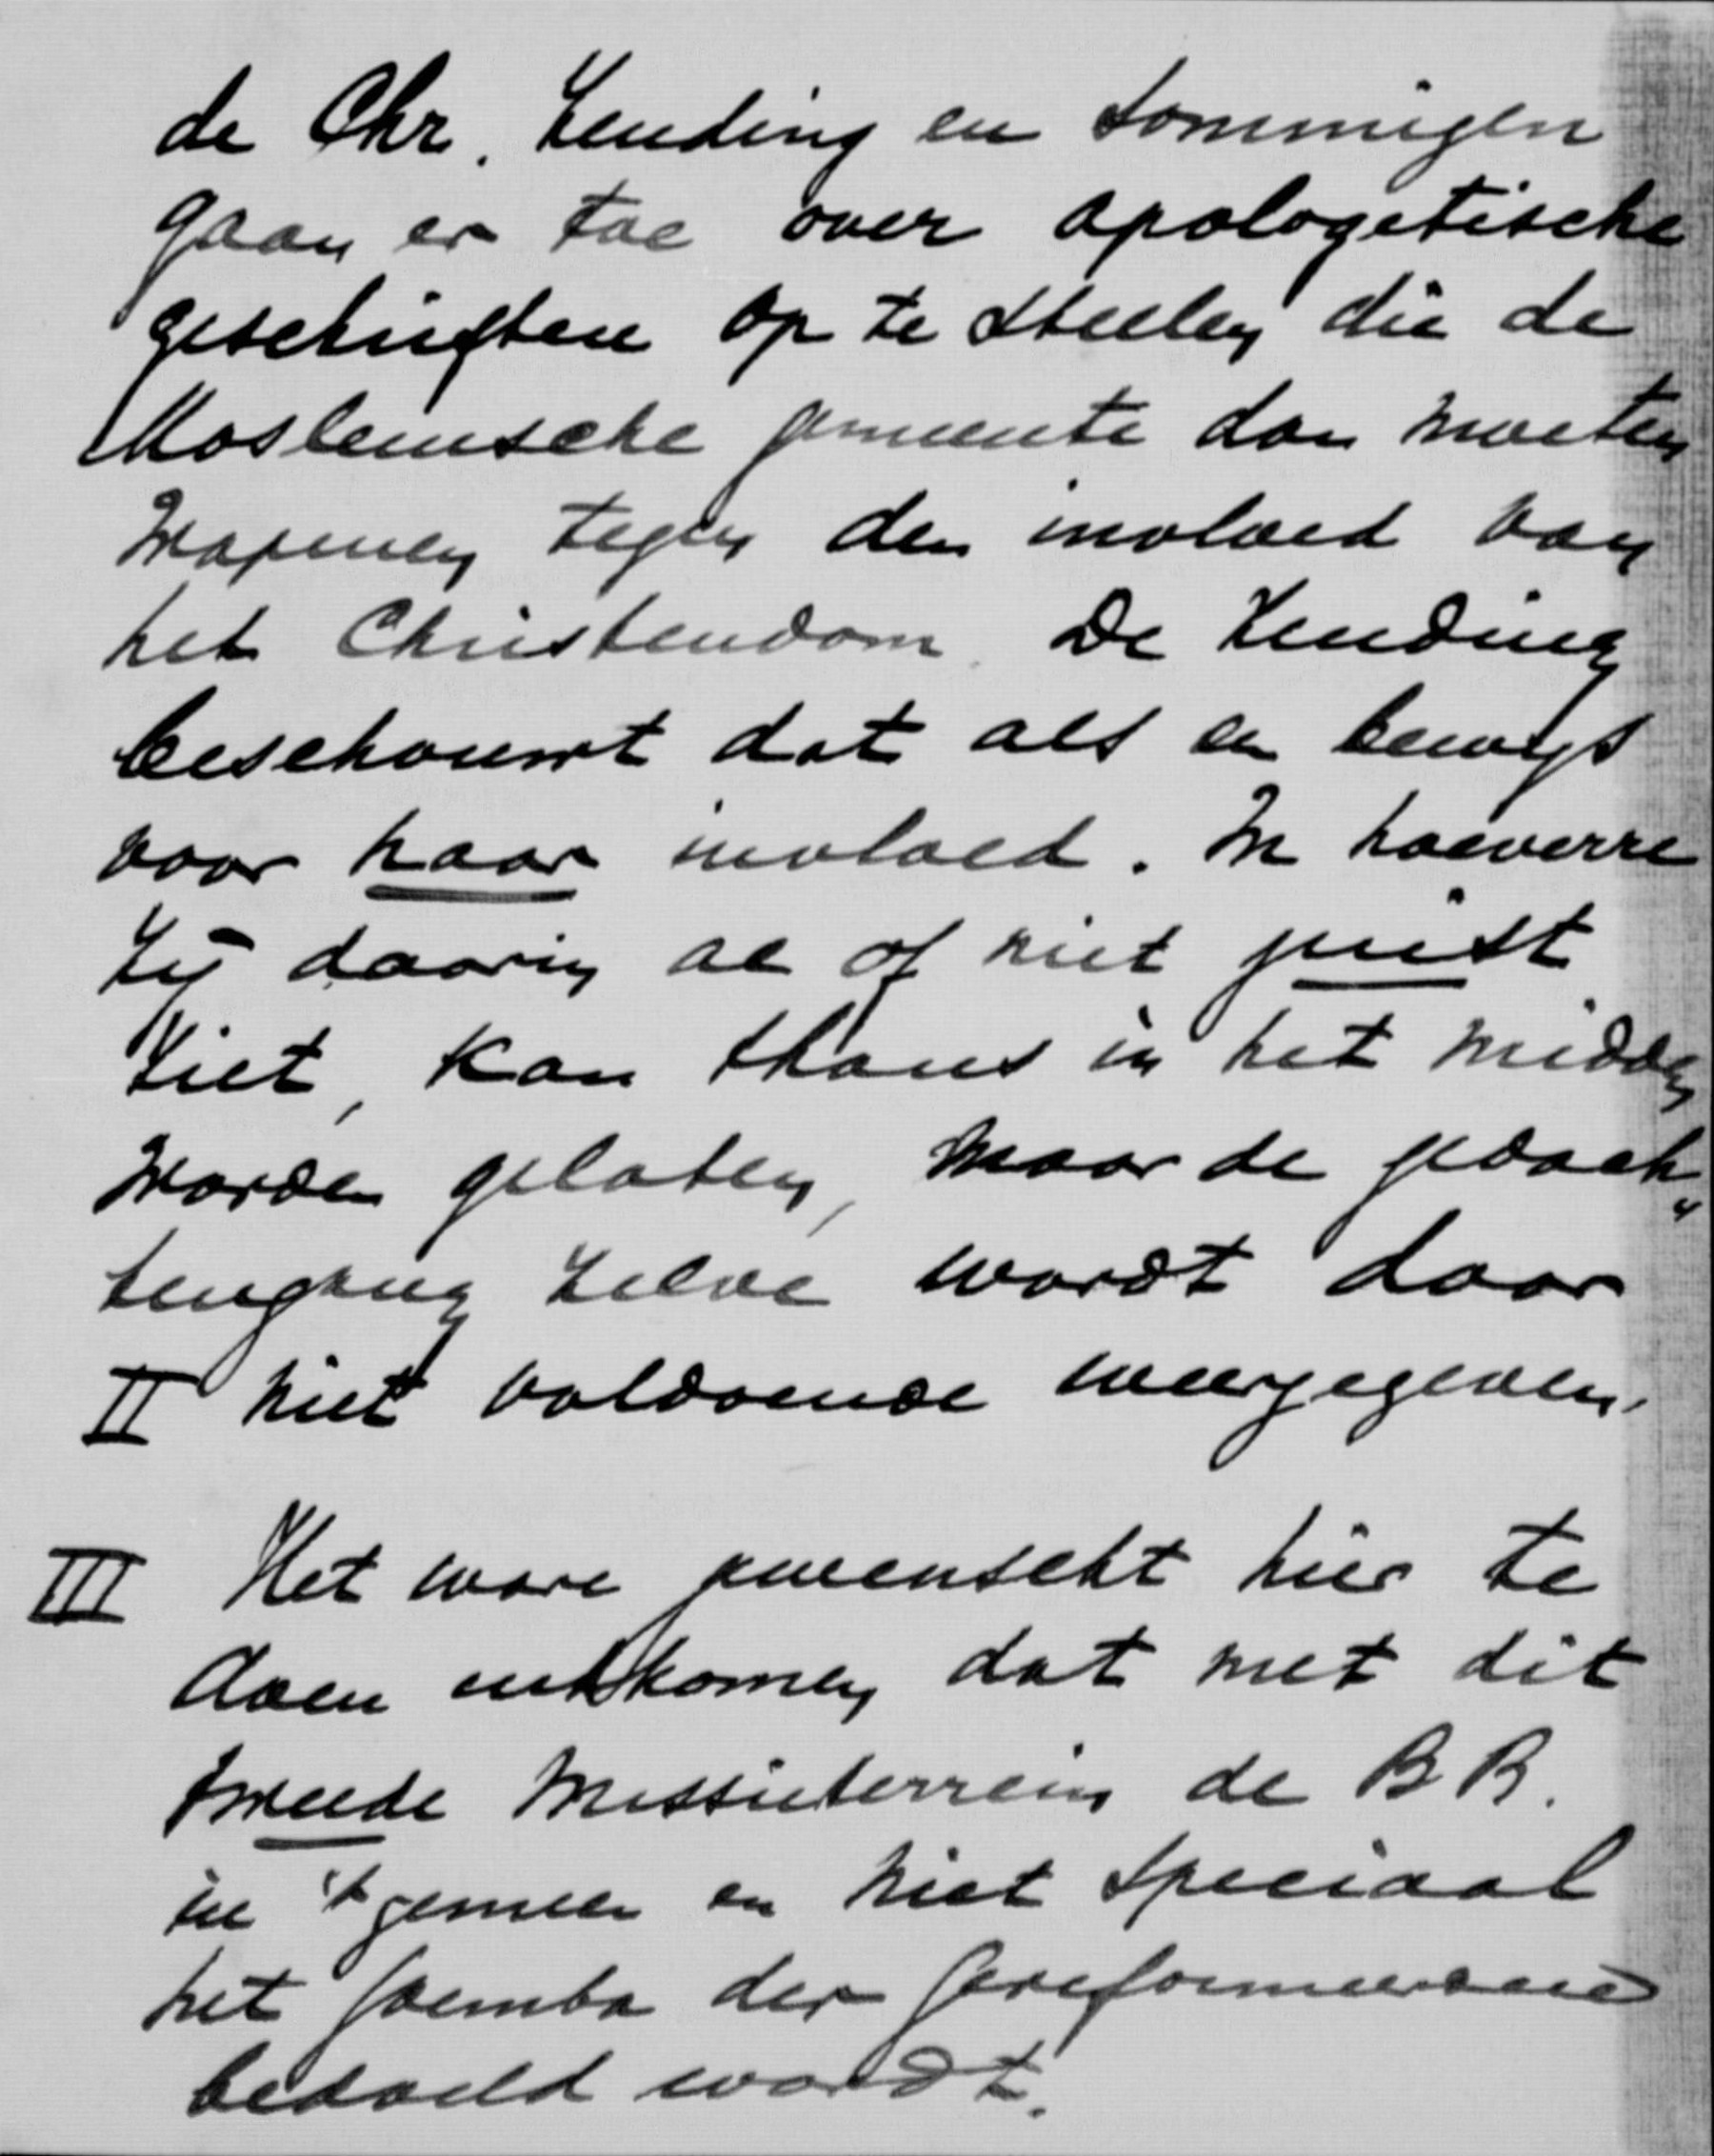 de Chr. Zending en sommigen
gaan er toe over apologetische
geschriften op te stellen die de
Moslemsche gemeente dan moeten
wapenen tegen den invloed van
het Christendom. De Zending
beschouwt dat als en bewijs
voor haar invloed. In hoeverre
zij daarin al of niet juist
ziet, kan thans in het midden
worden gelaten, maar de gedach„
tengang zelve wordt door
II niet voldoende weergegeven.
III Het ware gewenscht hier te
doen uitkomen dat met dit
tweede Missieterrein de BB.
in 't gemeen en niet speciaal
het Soemba der Gereformeerden
bedoeld wordt.